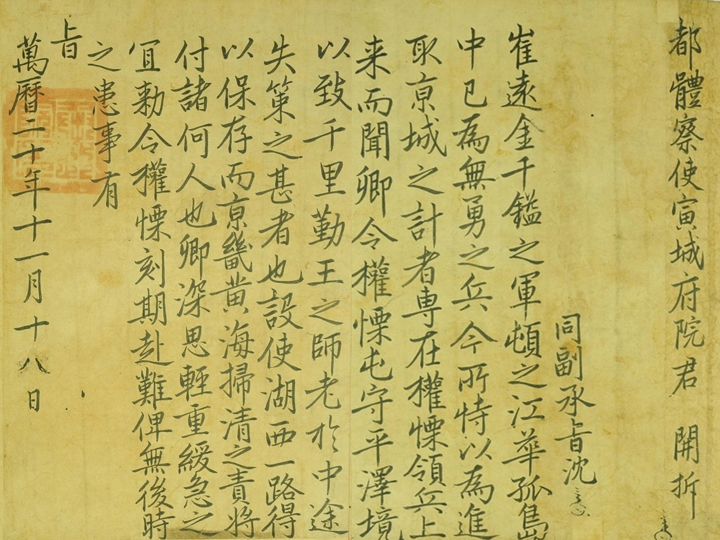 都體察使寅城府院君 開拆
同副承旨沈
崔遠金千鎰之軍頓之江華孤島
中已為無勇之兵今所恃以為進
取京城之計者專在權慄領兵上
来而聞卿令權慄屯守平澤境
以致千里勤王之師老於中途
失策之甚者也設使湖西一路得
以保存而京畿黄海掃清之責將
付諸何人也卿深思輕重緩急之
宜勑令權慄刻期赴難俾無後時
之患事有
旨
萬曆二十年十一月十八日